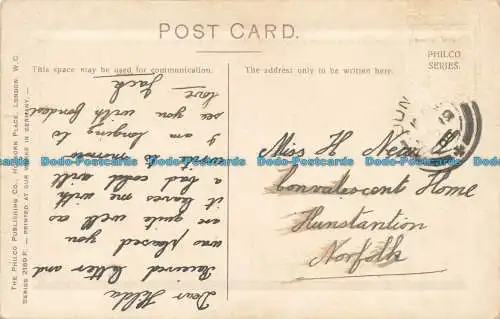 POST CARD.
PHILCO
SERIES.
This space may be used for communication.
The address only to be written here.
Dear Hilda
Received letter and
was pleased you
are quite well as
it leaves me with
a bad cold will
write to
I am longing to
see you with fondest
love Jack
Miss H
Convalescent Home
Hunstantion
Norfolk
THE PHILCO PUBLISHING CO., HOLBORN PLACE, LONDON, W.C.
SERIES 2189 F. — PRINTED AT OUR WORKS IN GERMANY.
Postcards-Auctions
Postcards-Auctions
Postcards-Auctions
Postcards-Auctions